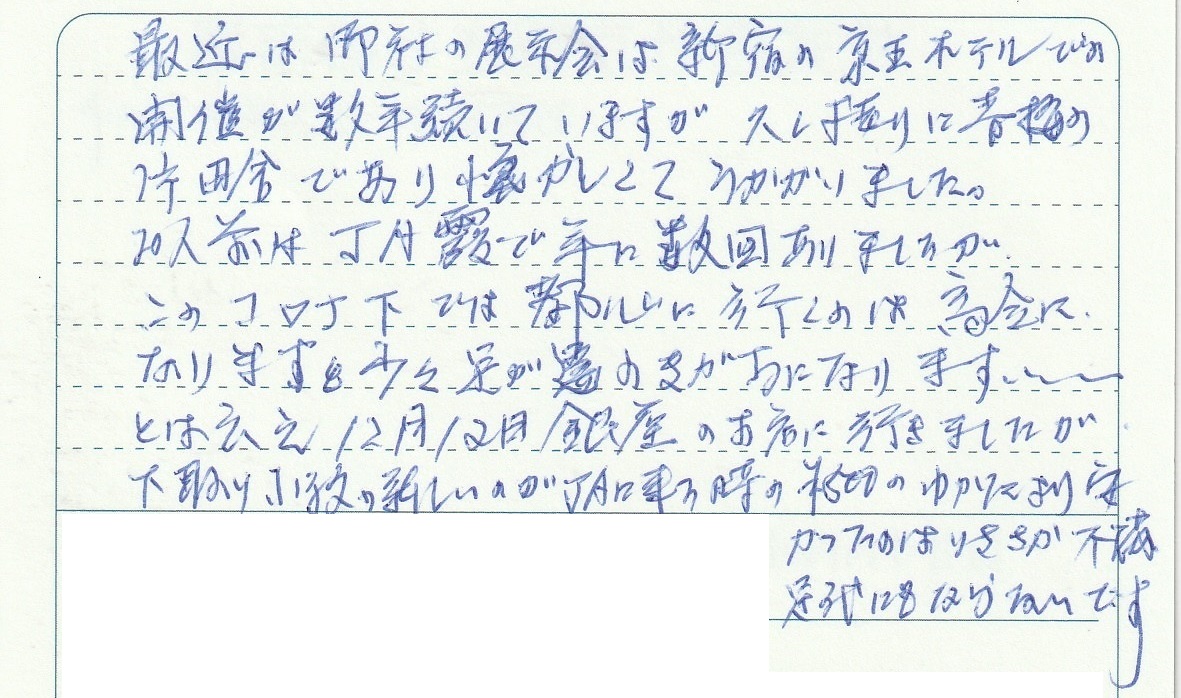 最近は御社の展示会は新宿の京王ホテルでの
開催が数年続いていますが久し振りに青梅の
片田舎であり懐かしくてうかがいました。
20人前は 霞で年に数回ありましたが、
このコロナ下では都心に行くのは億劫に
なりますと少々足が遠のきがちになります
とは云え12月12日銀座のお店に行きましたが
下取り の新しいのが 時の わかにより安
かったのはいささか不満
足代にもならないです